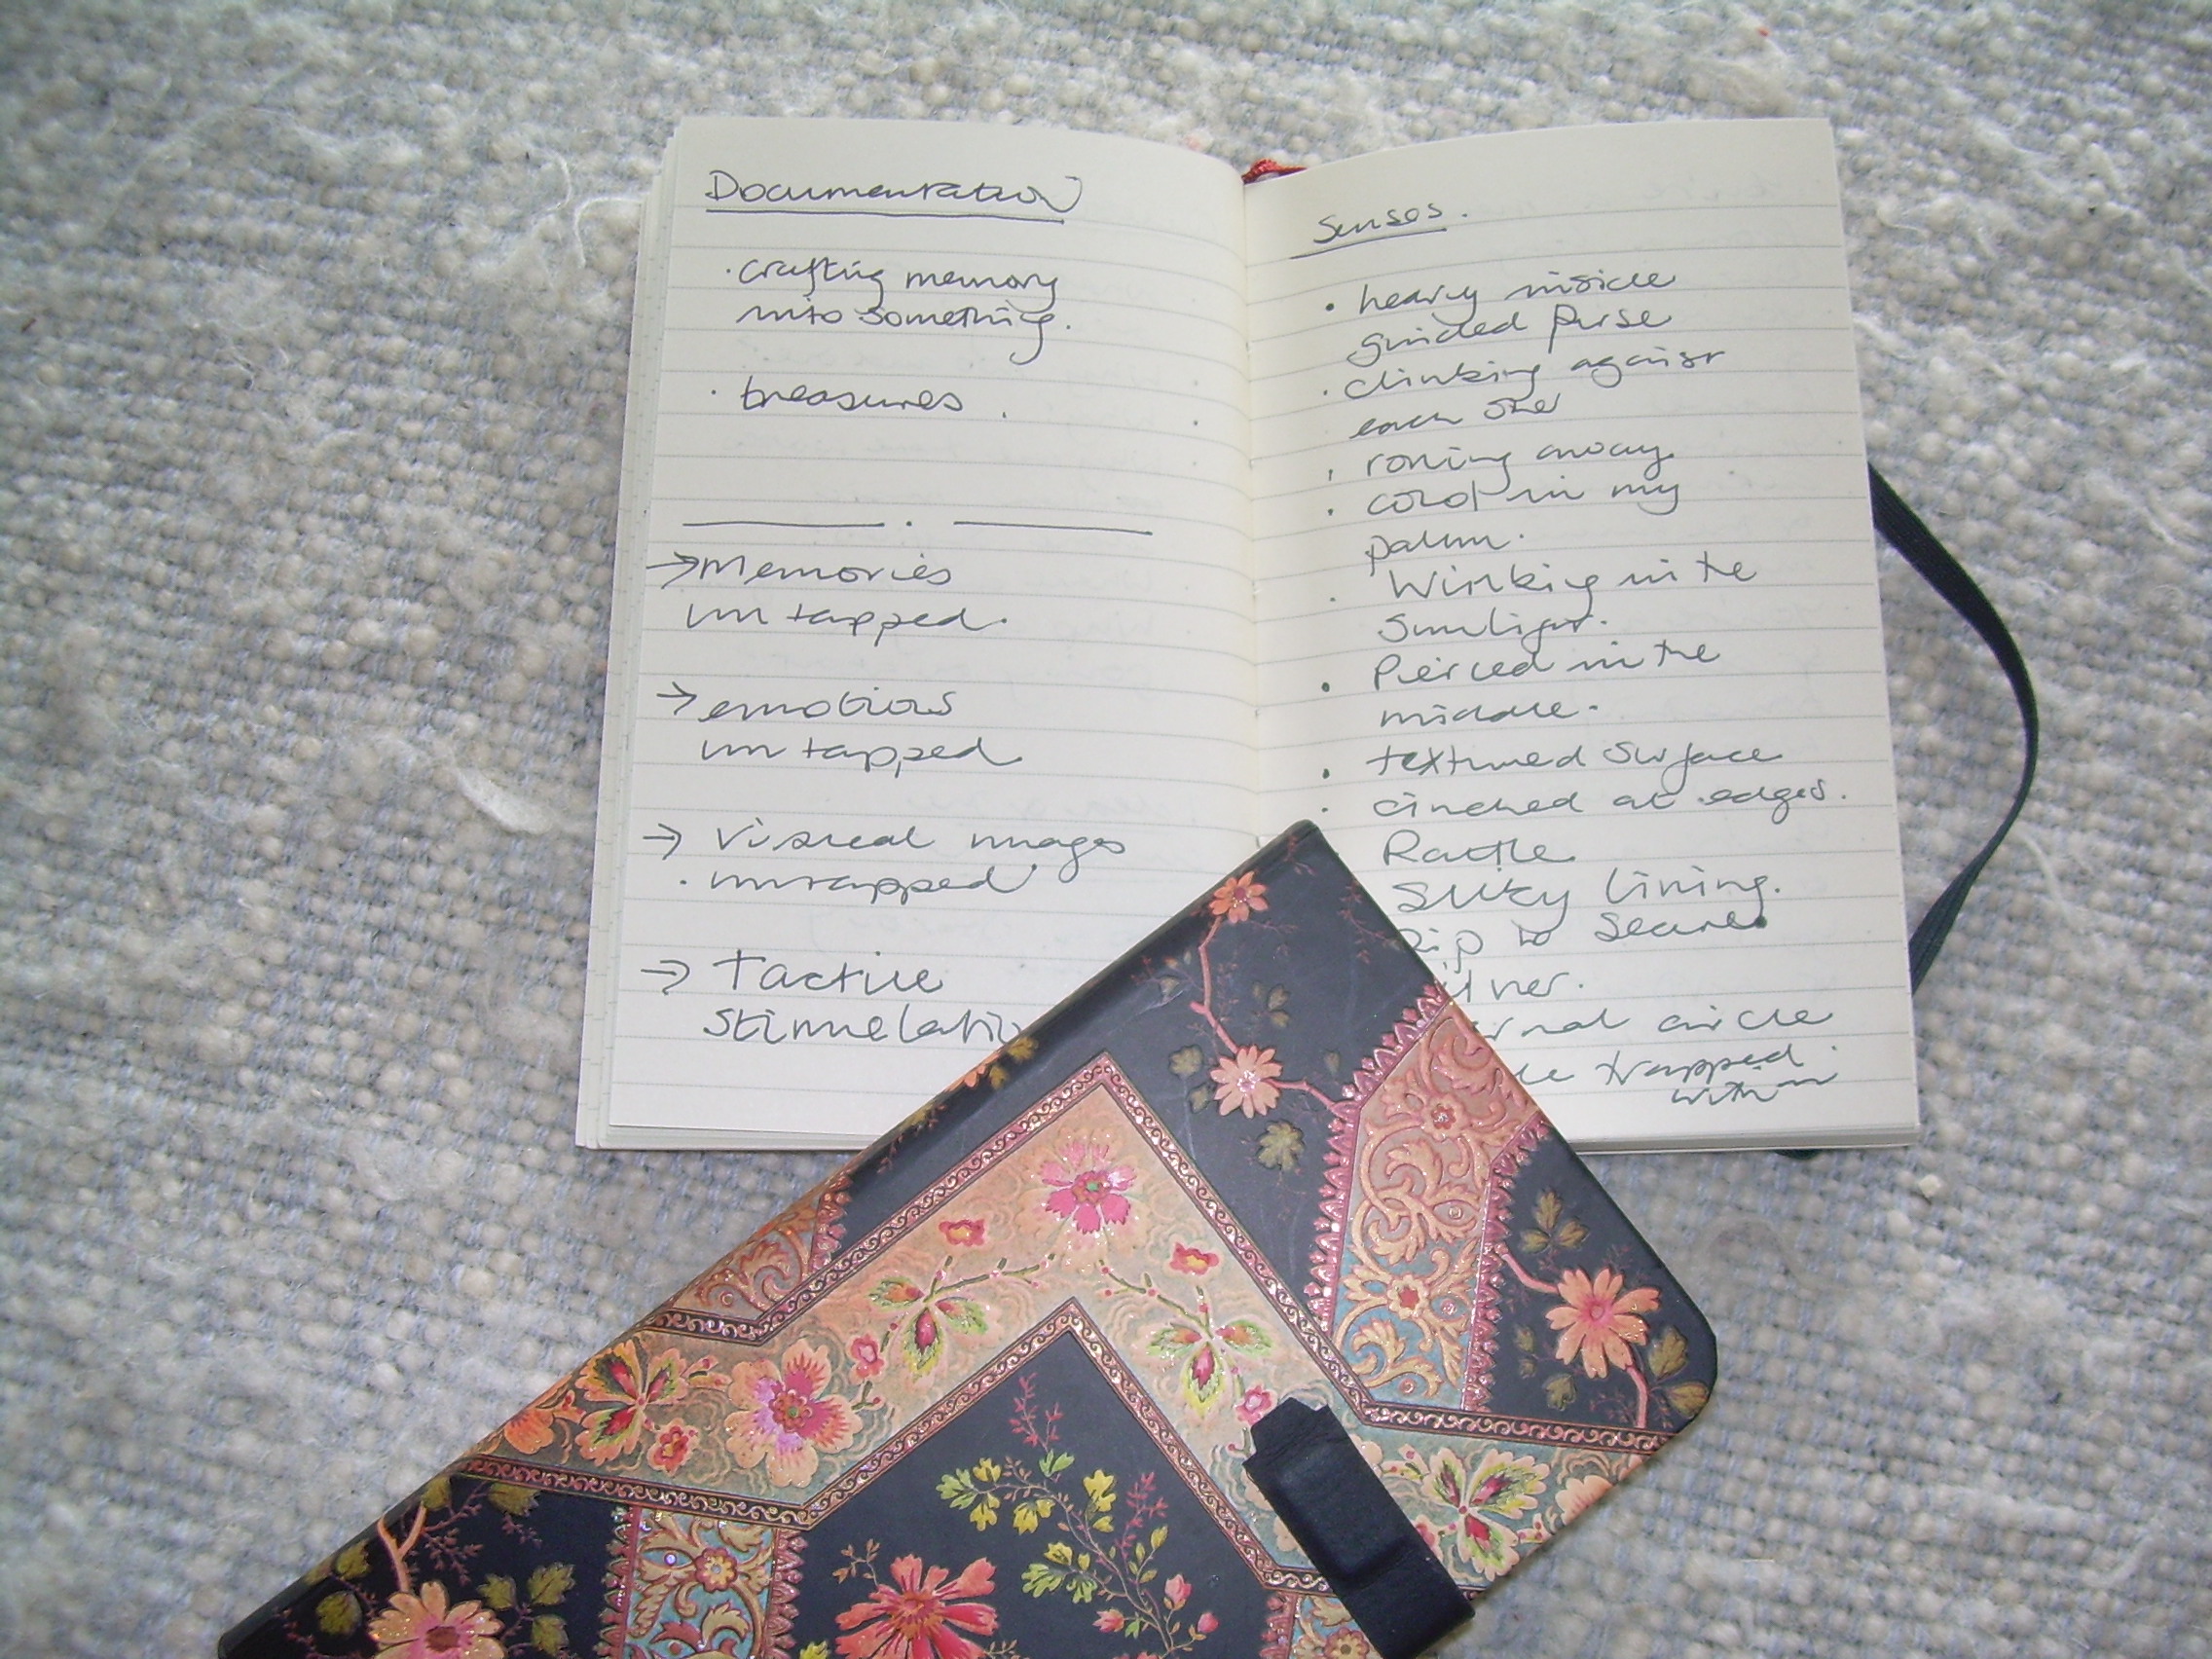 Documentation
· crafting memory
into something.
· treasures.
→ Memories
untapped.
→ emotions
untapped
→ Visual images
· untapped
→ Tactile
Senses.
· heavy inside
purse
· clinking against
each other
· rolling away
· cold in my
palm.
· Winking in the
Sunlight.
· Pierced in the
middle.
· textured surface
· cinched at edges.
Rattle
Silky lining.
to secure
circle
trapped
within